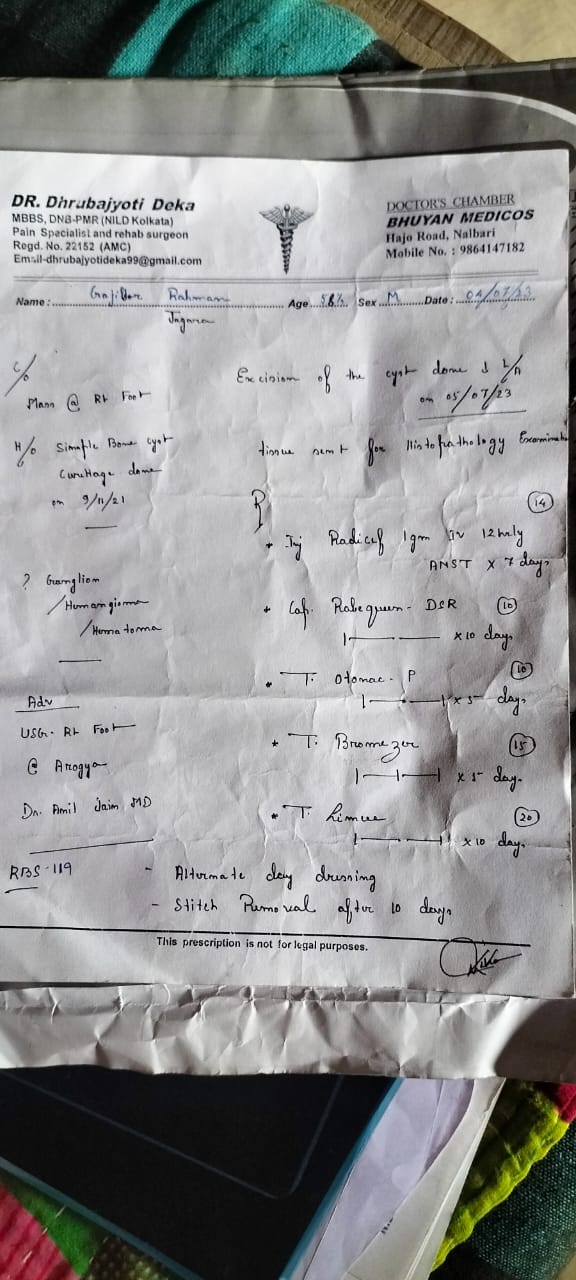 DR. Dhrubajyoti Deka
MBBS, DNB-PMR (NILD Kolkata)
Pain Specialist and rehab surgeon
Regd. No. 22152 (AMC)
Email-dhrubajyotideka99@gmail.com
DOCTOR'S CHAMBER
BHUYAN MEDICOS
Hajo Road, Nalbari
Mobile No. : 9864147182
Name : Rahman Age 58 Sex M Date : 04/07/23
Jagara
C/o
Mass @ Rt Foot
H/o Simple Bone cyst
Curettage done
on 9/11/21
? Ganglion
/Hemangioma
/Hematoma
Adv
USG- Rt Foot
@ Arogya
Dr. Amil Jain MD
RBS-119
Excision of the cyst done L/A
on 05/07/23
tissue sent for Histopathology Examination
R
Inj Radicef 1gm IV 12hrly (14)
ANST x 7 days
Cap. Rabequeen- DSR (10)
1 x 10 days
T. Otomac- P (10)
1 1 x 5 days
T. Bromezer (15)
1 1 1 x 5 days
T. (20)
1 1 x 10 days
- Alternate day dressing
- Stitch Removal after 10 days
This prescription is not for legal purposes.